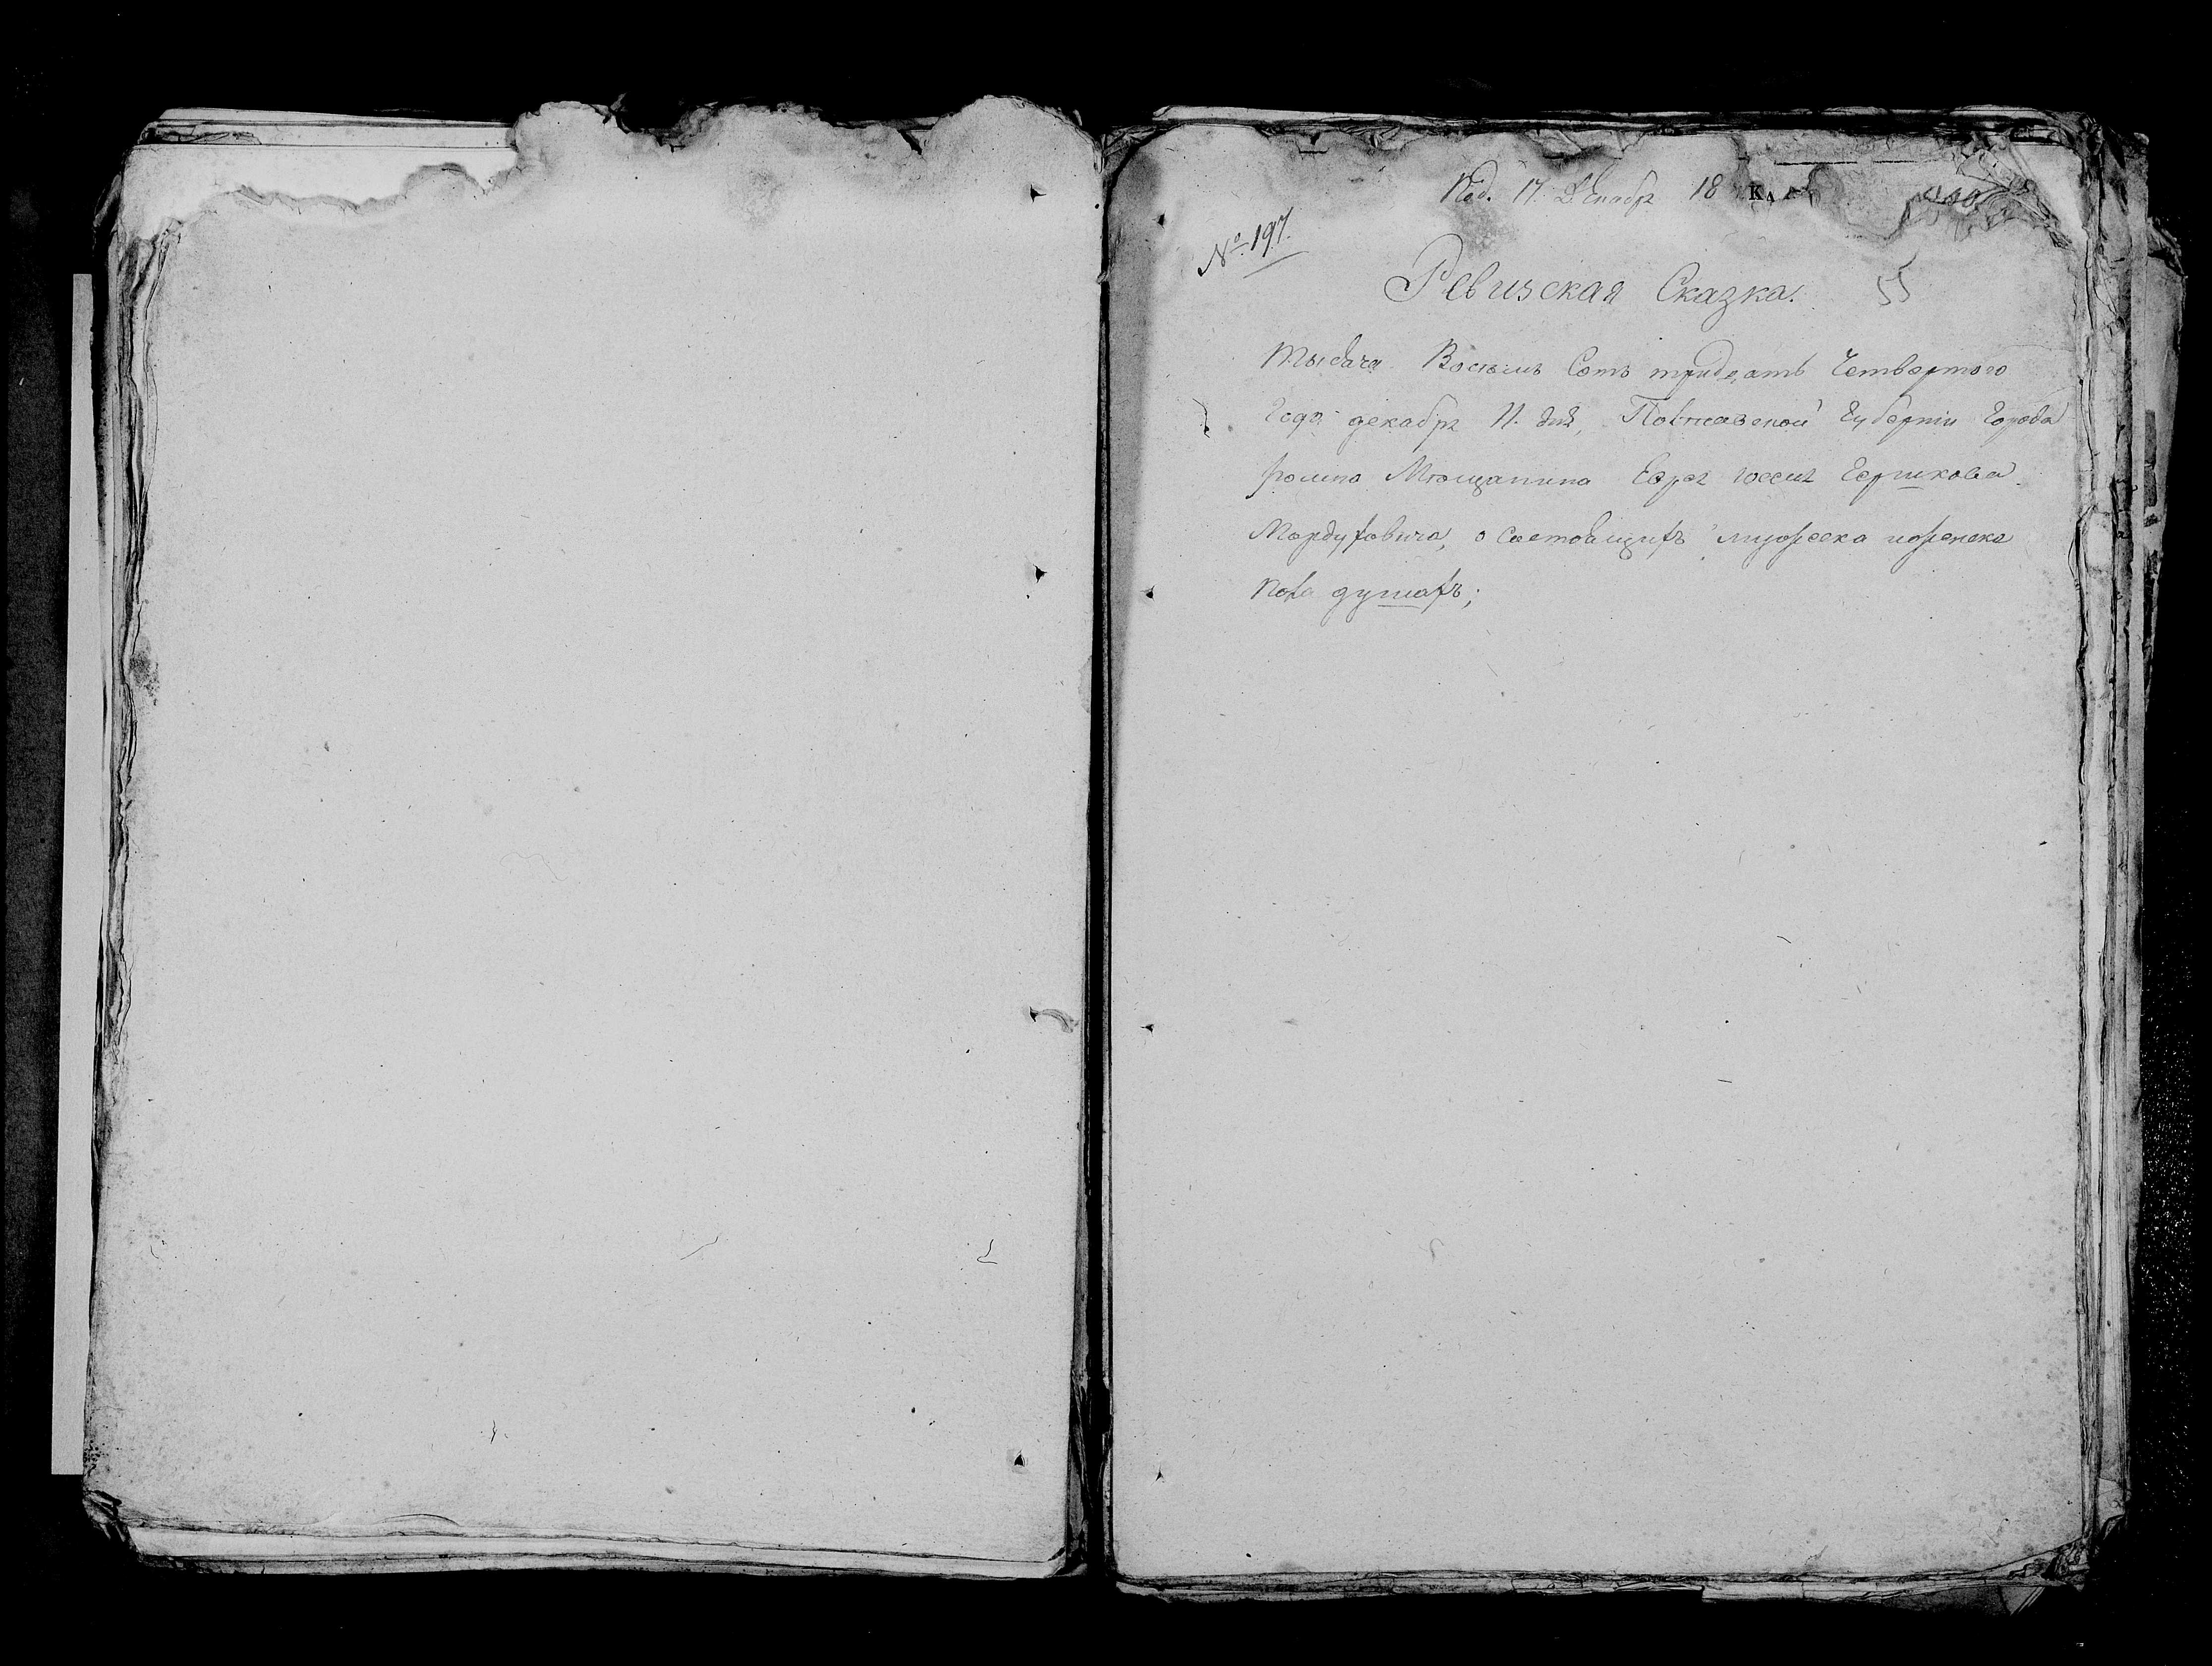 Под. 17. Декабря 18
№ 197.
Ревизская Сказка. 55
Тысеча Восемь Сотъ тридцать Четвертого
Года декабря дня, Полтавской Губернии Города
ромна Мещанина Еврея Гершкова
Мордуховича, о Состоящихъ мужеска иженска
пола душахъ;